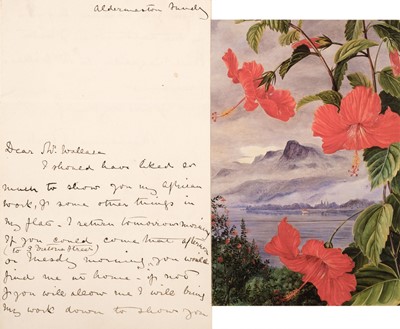 Aldermaston Sunday
Dear Mr. Wallace
I should have liked so
much to show you my African
work, & some other things in
my flat, I return tomorrow morning
If you could come that
(to 3 Victoria Street)
or Tuesday morning, you would
find me at home & if not
if you will allow me I will bring
my work down to show you